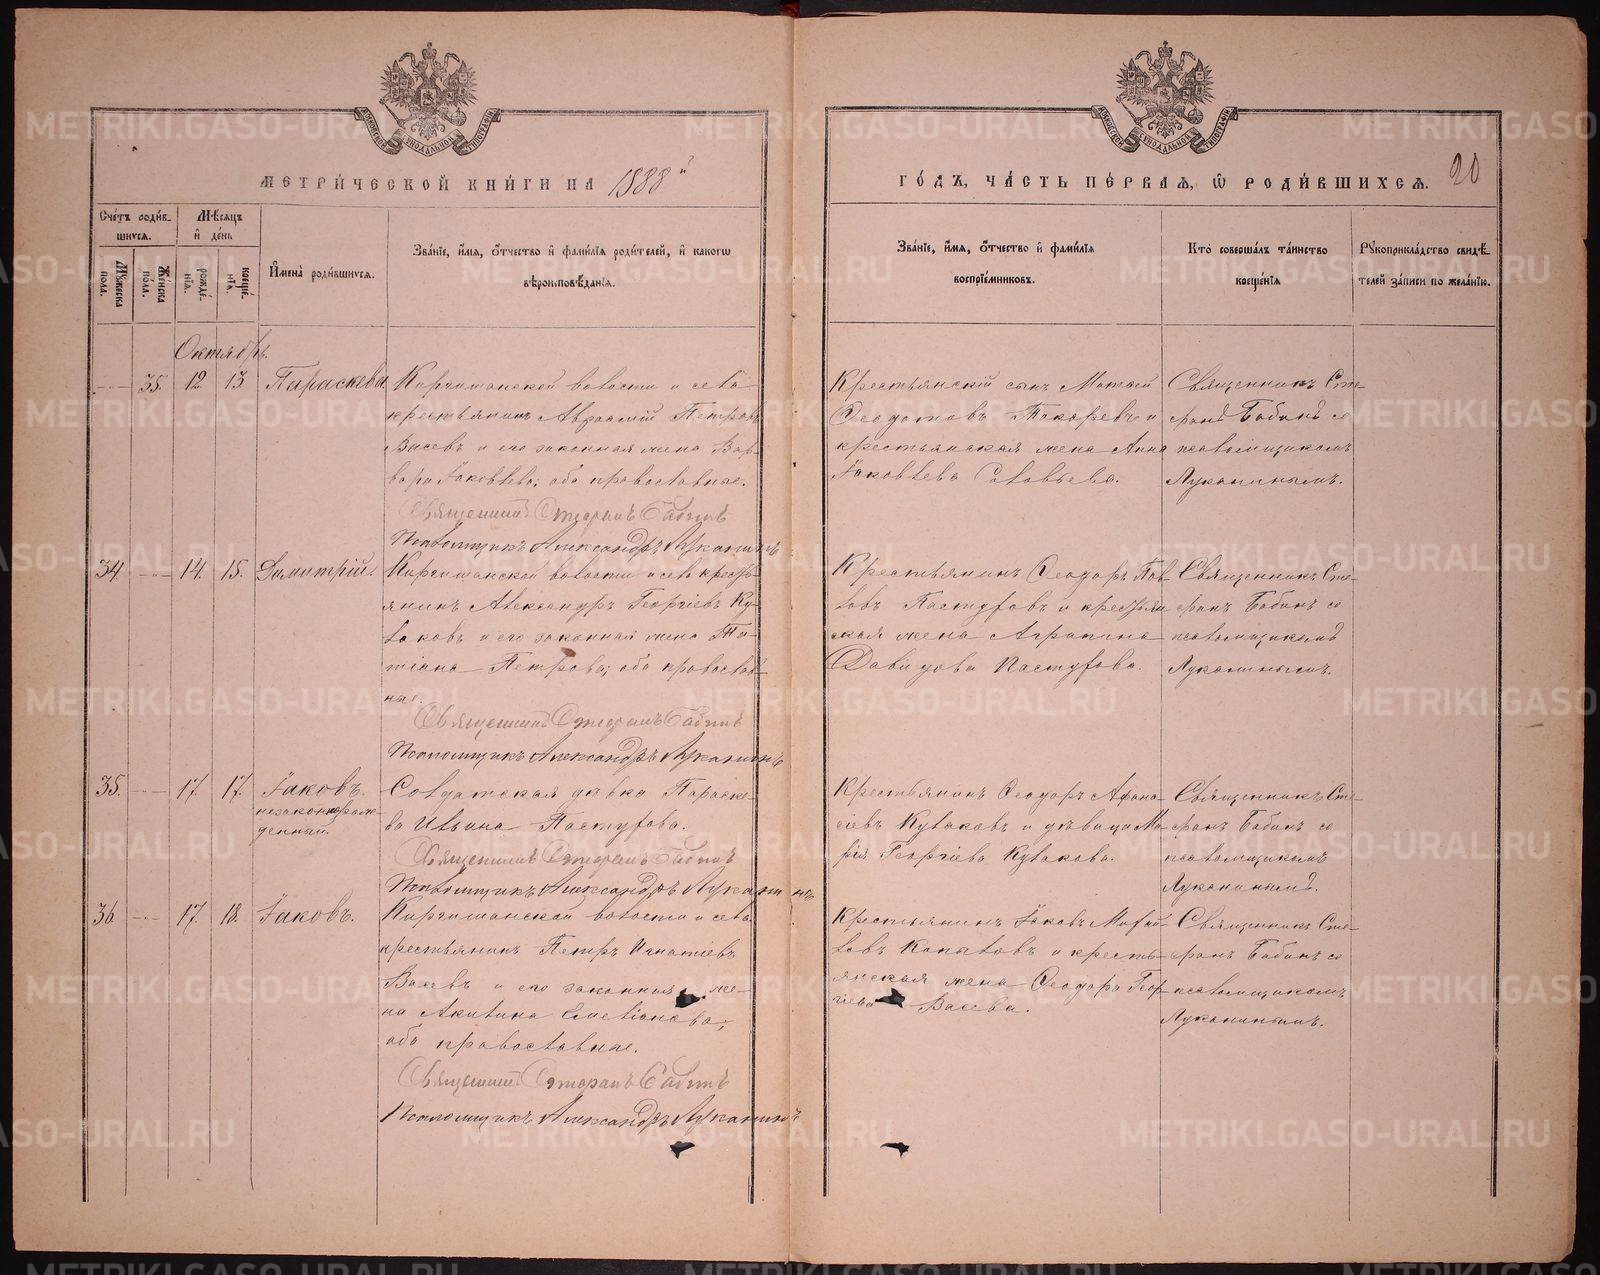 МЕТРИ́ЧЕСКОЙ КНИ́ГИ НА 1888й
ГО́ДЪ, ЧА́СТЬ ПЕ́РВАЯ, Ѡ РОДИ́ВШИХСЯ.
20
Сче́тъ роди́в-
шихся.
Му́жеска
пола.
Же́нска
пола.
Мѣ́сяцъ
и҆ де́нь
рожде́-
нїѧ.
креще́-
нїѧ.
И҆мена̀ роди́вшихся.
Зва́нїе, и҆́мя, ѻ҆́тчество и҆ фами́лїя роди́телей, и҆ како́гѡ
вѣроисповѣ́данїя.
Зва́нїе, и҆́мя, ѻ҆́тчество и҆ фами́лїя
воспрїе́мниковъ.
Кто̀ соверша́лъ та́инство
креще́нїя
Рѹкоприкла́дство свидѣ́-
телей за́писи по жела́нїю.
Октябрь.
35. 12 13. Параскева
Киргишанской волости и села
крестьянинъ Авраамій Петровъ
Васевъ и его законная жена Вар-
вара Іаковлева, оба православные.
Священникъ Стефанъ Бабинъ
Псаломщикъ Александръ Луканинъ
Крестьянскій сынъ Матѳей
Ѳеодотовъ Токаревъ и
крестьянская жена Анна
Іаковлева Соловьева.
Священникъ Сте-
фанъ Бабинъ со
псаломщикомъ
Луканинымъ.
34. 14. 15. Димитрій.
Киргишанской волости и села кресть-
янинъ Александръ Георгіевъ Ку-
лаковъ и его законная жена Та-
тіана Петрова, оба православ-
ные.
Священникъ Стефанъ Бабинъ
Псаломщикъ Александръ Луканинъ
Крестьянинъ Ѳеодоръ Пав-
ловъ Пастуховъ и крестьян-
ская жена Агрипина
Давидова Пастухова.
Священникъ Сте-
фанъ Бабинъ со
псаломщикомъ
Луканинымъ.
35. 17. 17. Іаковъ.
незаконнорож-
денный.
Солдатская дѣвка Параске-
ва Ильина Пастухова.
Священникъ Стефанъ Бабинъ
Псаломщикъ Александръ Луканинъ
Крестьянинъ Ѳеодоръ Афана-
сіевъ Кулаковъ и дѣвица Ма-
рія Георгіева Кулакова.
Священникъ Сте-
фанъ Бабинъ со
псаломщикомъ
Луканинымъ.
36. 17. 18. Іаковъ.
Киргишанской волости и села
крестьянинъ Петръ Игнатіевъ
Васевъ и его законная же-
на Акилина Емеліанова,
оба православные.
Священникъ Стефанъ Бабинъ
Псаломщикъ Александръ Луканинъ
Крестьянинъ Іаковъ Михай-
ловъ Копыловъ и кресть-
янская жена Ѳеодора Геор-
гіева Васева.
Священникъ Сте-
фанъ Бабинъ со
псаломщикомъ
Луканинымъ.
METRIKI.GASO-URAL.RU